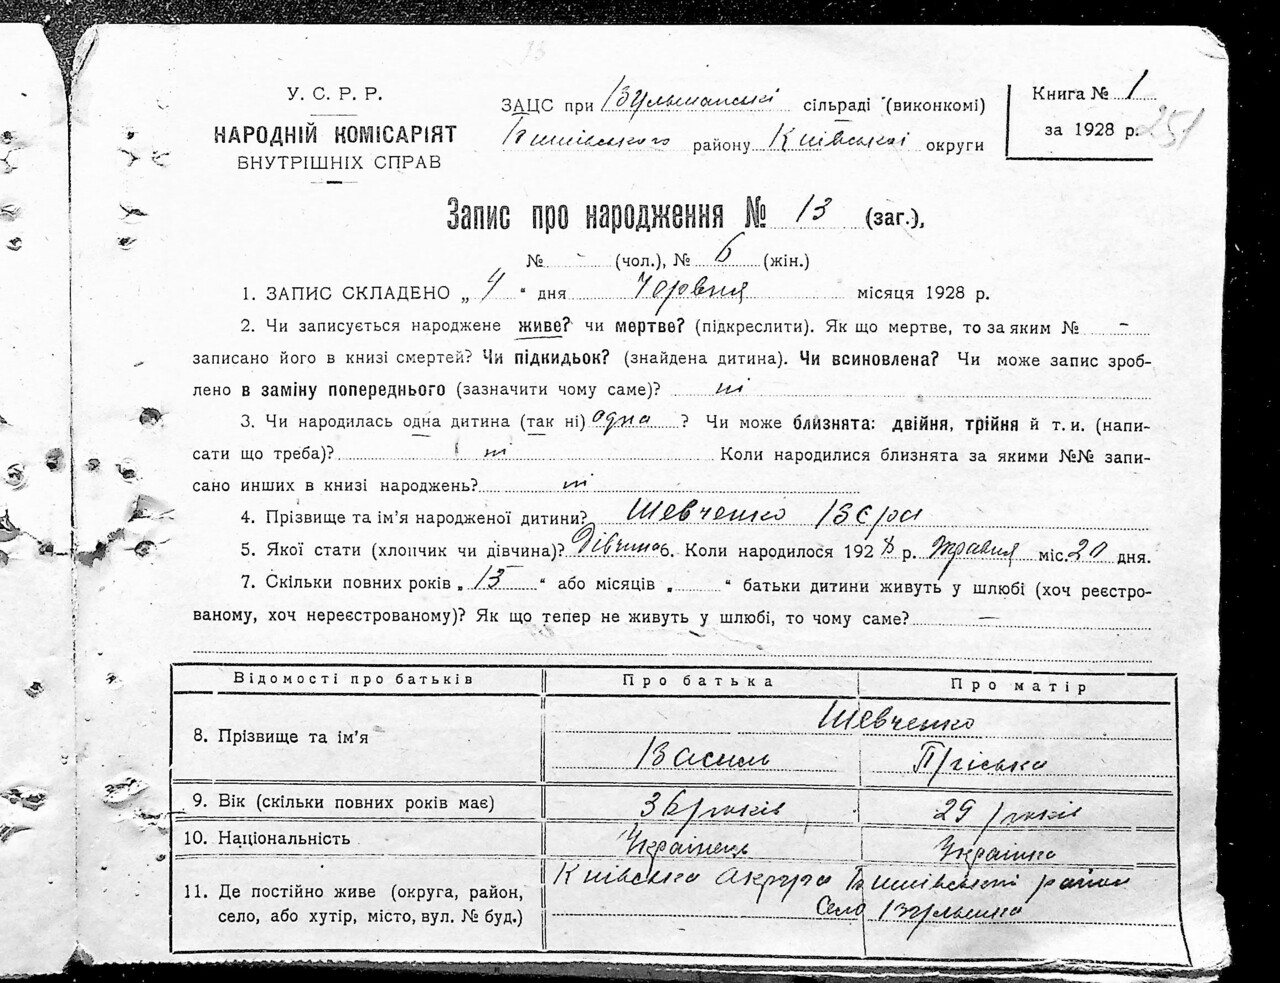 У. С. Р. Р.
НАРОДНІЙ КОМІСАРІЯТ
ВНУТРІШНІХ СПРАВ
ЗАЦС при Вульшанській сільраді (виконкомі)
району Київської округи
Книга № 1
за 1928 р.
251
Запис про народження № 13 (заг.),
№ - (чол.), № 6 (жін.)
1. ЗАПИС СКЛАДЕНО „ 4 “ дня Чорвня місяця 1928 р.
2. Чи записується народжене живе? чи мертве? (підкреслити). Як що мертве, то за яким № -
записано його в книзі смертей? Чи підкидьок? (знайдена дитина). Чи всиновлена? Чи може запис зроб-
лено в заміну попереднього (зазначити чому саме)? ні
3. Чи народилась одна дитина (так ні) одна ? Чи може близнята: двійня, трійня й т. и. (напи-
сати що треба)? ні Коли народилися близнята за якими №№ запи-
сано инших в книзі народжень? ні
4. Прізвище та ім’я народженої дитини? Шевченко Вєра
5. Якої стати (хлопчик чи дівчина)? Дівчина 6. Коли народилося 1928 р. травня міс. 20 дня.
7. Скільки повних років „ 13 “ або місяців „ “ батьки дитини живуть у шлюбі (хоч реєстро-
ваному, хоч нереєстрованому)? Як що тепер не живуть у шлюбі, то чому саме? —
Відомості про батьків Про батька Про матір
8. Прізвище та ім’я Шевченко
Василь Пріська
9. Вік (скільки повних років має) 36 років 29 років
10. Національність Українець Українка
11. Де постійно живе (округа, район, Київська Акруга район
село, або хутір, місто, вул. № буд.) Село Вульшка